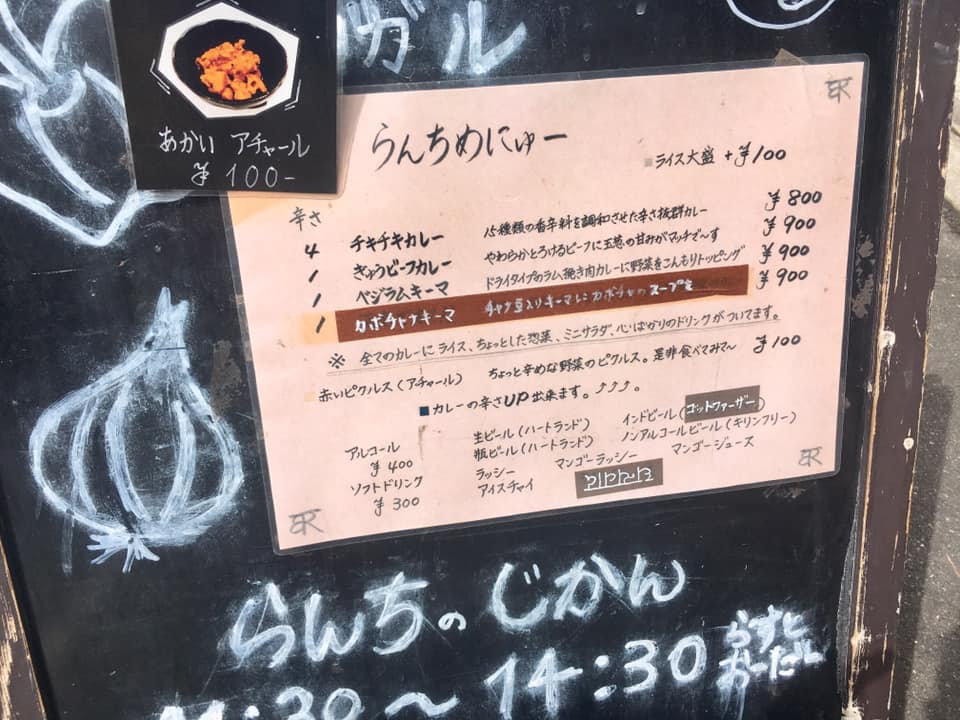 ガル
あかい アチャール
¥100-
らんちめにゅー
ライス大盛 +¥100
辛さ
4 チキチキカレー 15種類の香辛料を調和させた辛さ抜群カレー ¥800
1 ぎゅうビーフカレー やわらかとろけるビーフに玉葱の甘みがマッチで〜す ¥900
1 ベジラムキーマ ドライタイプのラム挽き肉カレーに野菜をこんもりトッピング ¥900
1 カボチャナキーマ チャナ豆入りキーマにカボチャのスープを ¥900
※ 全てのカレーにライス、ちょっとした惣菜、ミニサラダ、心ばかりのドリンクがついてます。
赤いピクルス(アチャール) ちょっと辛めな野菜のピクルス。是非食べてみて〜 ¥100
カレーの辛さUP出来ます。⤴⤴⤴。
アルコール ¥400 生ビール(ハートランド) インドビール(ゴットファーザー)
瓶ビール(ハートランド) ノンアルコールビール(キリンフリー)
ソフトドリンク ¥300 ラッシー マンゴーラッシー マンゴージュース
アイスチャイ
らんちのじかん
11:30〜14:30 らすとおーだー